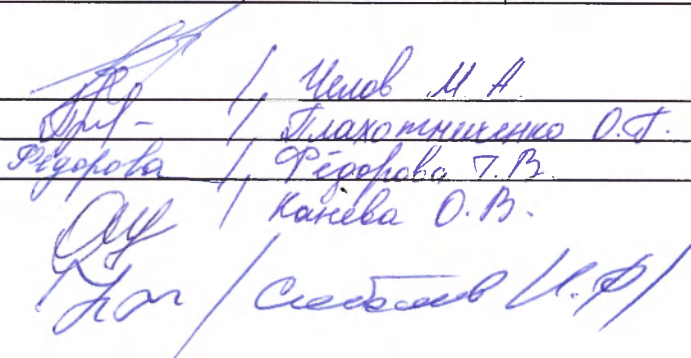 / Челов М. А.
/ Плахотниченко О.П.
Фёдорова / Фёдорова Т.В.
/ Канева О.В.
/ И.Ф/